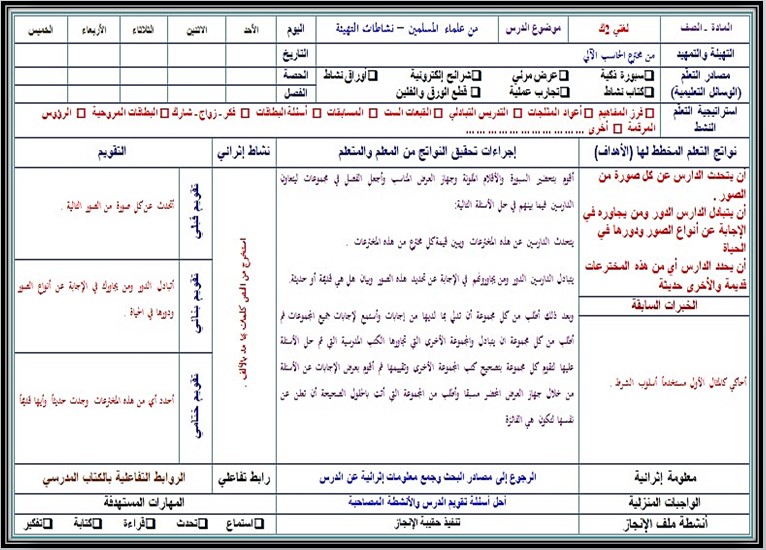 المادة - الصف لغتي ٢ك موضوع الدرس من علماء المسلمين – نشاطات التهيئة اليوم الأحد الاثنين الثلاثاء الأربعاء الخميس
التهيئة والتمهيد من مخترع الحاسب الآلي التاريخ
مصادر التعلم سبورة ذكية عرض مرئي شرائح إلكترونية أوراق نشاط الحصة
(الوسائل التعليمية) كتاب نشاط تجارب عملية قطع الورق والفلين الفصل
استراتيجية التعلم فرز المفاهيم أعواد المثلجات التدريس التبادلي القبعات الست المسابقات أسئلة البطاقات فكر - زواج - شارك البطاقات المروحية الرؤوس
النشط المرقمة أخرى ... ... ... ... ... ... ... ...
نواتج التعلم المخطط لها (الأهداف) إجراءات تحقيق النواتج من المعلم والمتعلم نشاط إثرائي التقويم
أن يتحدث الدارس عن كل صورة من
الصور .
أن يتبادل الدارس الدور ومن يجاوره في
الإجابة عن أنواع الصور ودورها في
الحياة
أن يحدد الدارس أي من هذه المخترعات
قديمة والأخرى حديثة
الخبرات السابقة
أحاكي كالمثال الأول مستخدماً أسلوب الشرط .
أقوم بتحضير السبورة والأقلام الملونة وجهاز العرض المناسب وأجعل الفصل في مجموعات ليتعاون
الدارسين فيما بينهم في حل الأسئلة التالية:
يتحدث الدارسين عن هذه المخترعات ويبين قيمة كل مخترع من هذه المخترعات .
يتبادل الدارسين الدور ومن يجاورونهم في الإجابة عن تحديد هذه الصور وبيان هل هي قديمة أو حديثة.
وبعد ذلك أطلب من كل مجموعة أن تدلي بما لديها من إجابات وأستمع لإجابات جميع المجموعات ثم
أطلب من كل مجموعة ان يتبادل والمجموعة الأخرى التي تجاورها الكتب المدرسية التي تم حل الأسئلة
عليها لتقوم كل مجموعة بتصحيح كتب المجموعة الأخرى وتقييمها ثم أقوم بعرض الإجابات عن الأسئلة
من خلال جهاز العرض المحضر مسبقا وأطلب من المجموعة التي أتت بالحلول الصحيحة أن تعلن عن
نفسها لتكون هي الفائزة
استخرج من النص كلمات بها مد بالألف .
تقويم قبلي
أتحدث عن كل صورة من الصور التالية .
تقويم بنائي
أتبادل الدور ومن يجاورك في الإجابة عن أنواع الصور
ودورها في الحياة .
تقويم ختامي
أحدد أي من هذه المخترعات وجدت حديثاً وأيها قديماً
معلومة إثرائية الرجوع إلى مصادر البحث وجمع معلومات إثرائية عن الدرس رابط تفاعلي الروابط التفاعلية بالكتاب المدرسي
الواجبات المنزلية أحل أسئلة تقويم الدرس والأنشطة المصاحبة المهارات المستهدفة
أنشطة ملف الإنجاز تنفيذ حقيبة الإنجاز استماع تحدث قراءة كتابة تفكير